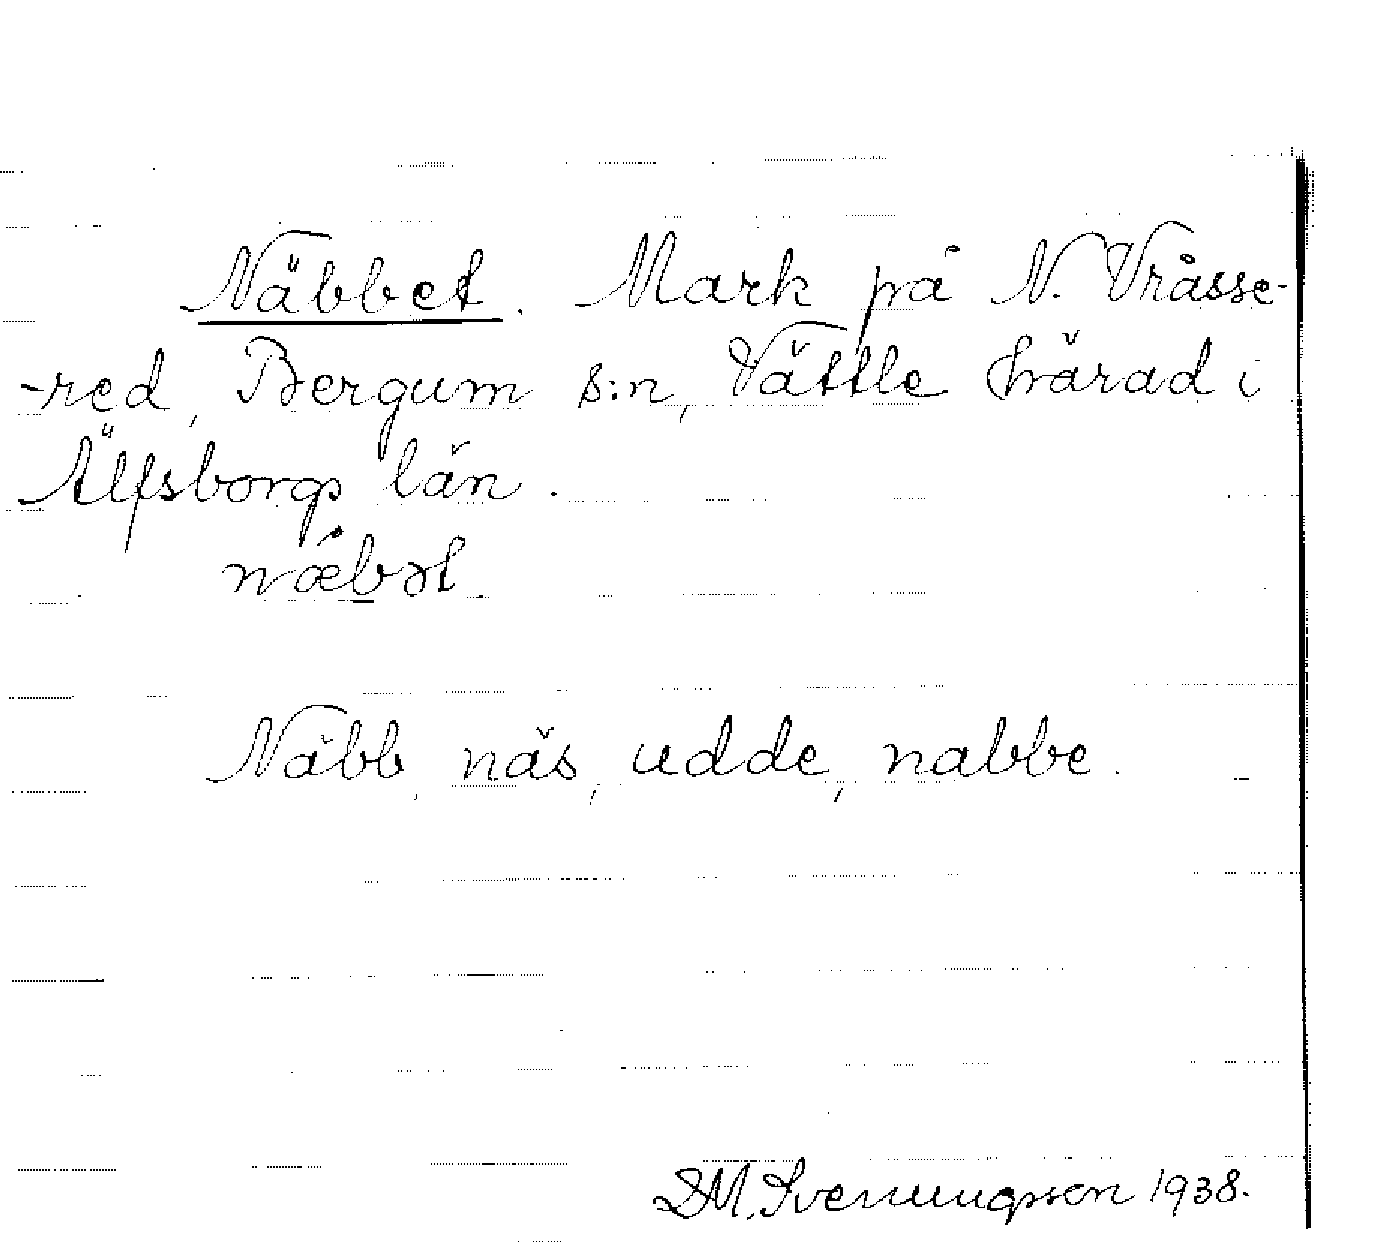 Näbbet. Mark på N. Vråsse-
-red, Bergum s:n, Vättle härad i
Älfsborgs län.
næ̀b̲ət.
Näbb, näs, udde, nabbe.
D.M. Svenungsson 1938.